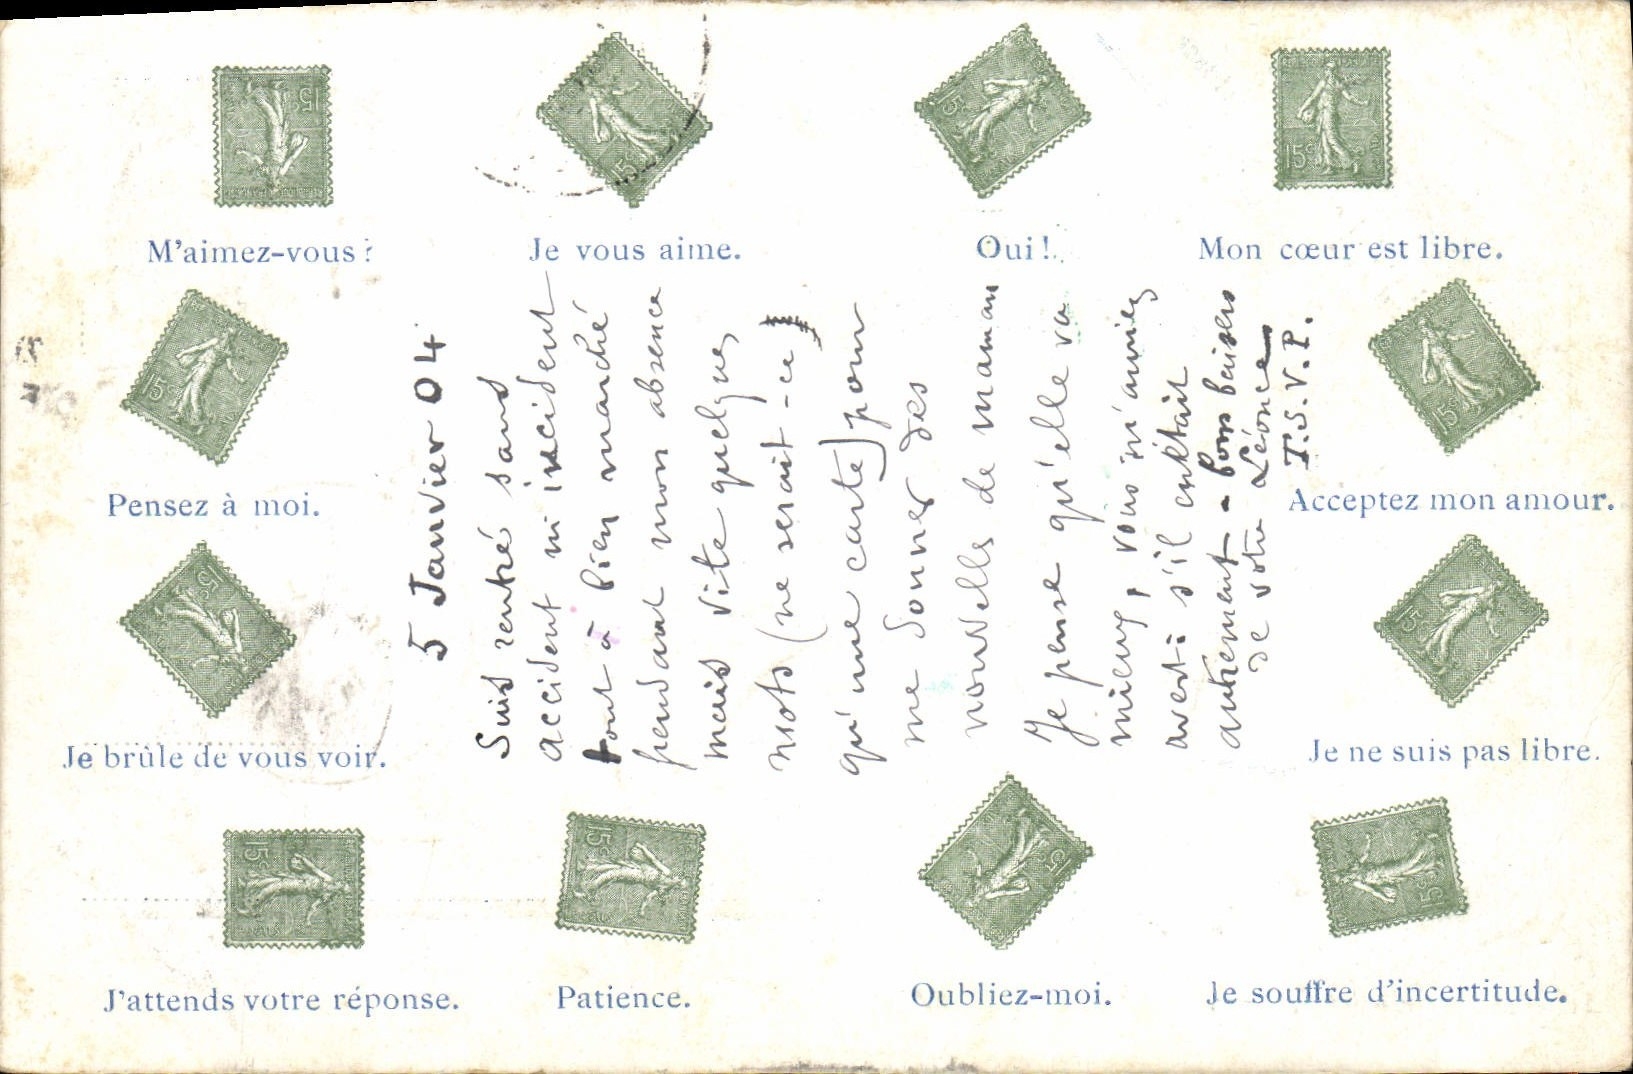 M'aimez-vous ?
Je vous aime.
Oui !
Mon cœur est libre.
Pensez à moi.
Acceptez mon amour.
Je brûle de vous voir.
Je ne suis pas libre.
J'attends votre réponse.
Patience.
Oubliez-moi.
Je souffre d'incertitude.
5 Janvier 04
Suis rentré sans
accident ni incident
tout a bien marché
pendant mon absence
mais vite quelques
mots (ne serait-ce
qu'une carte) pour
me donner des
nouvelles de maman
Je pense qu'elle va
mieux, vous m'auriez
averti s'il en était
autrement - bons baisers
de votre Léonce
T.S.V.P.
15c
15c
15c
15c
15c
15c
15c
15c
15c
15c
15c
15c